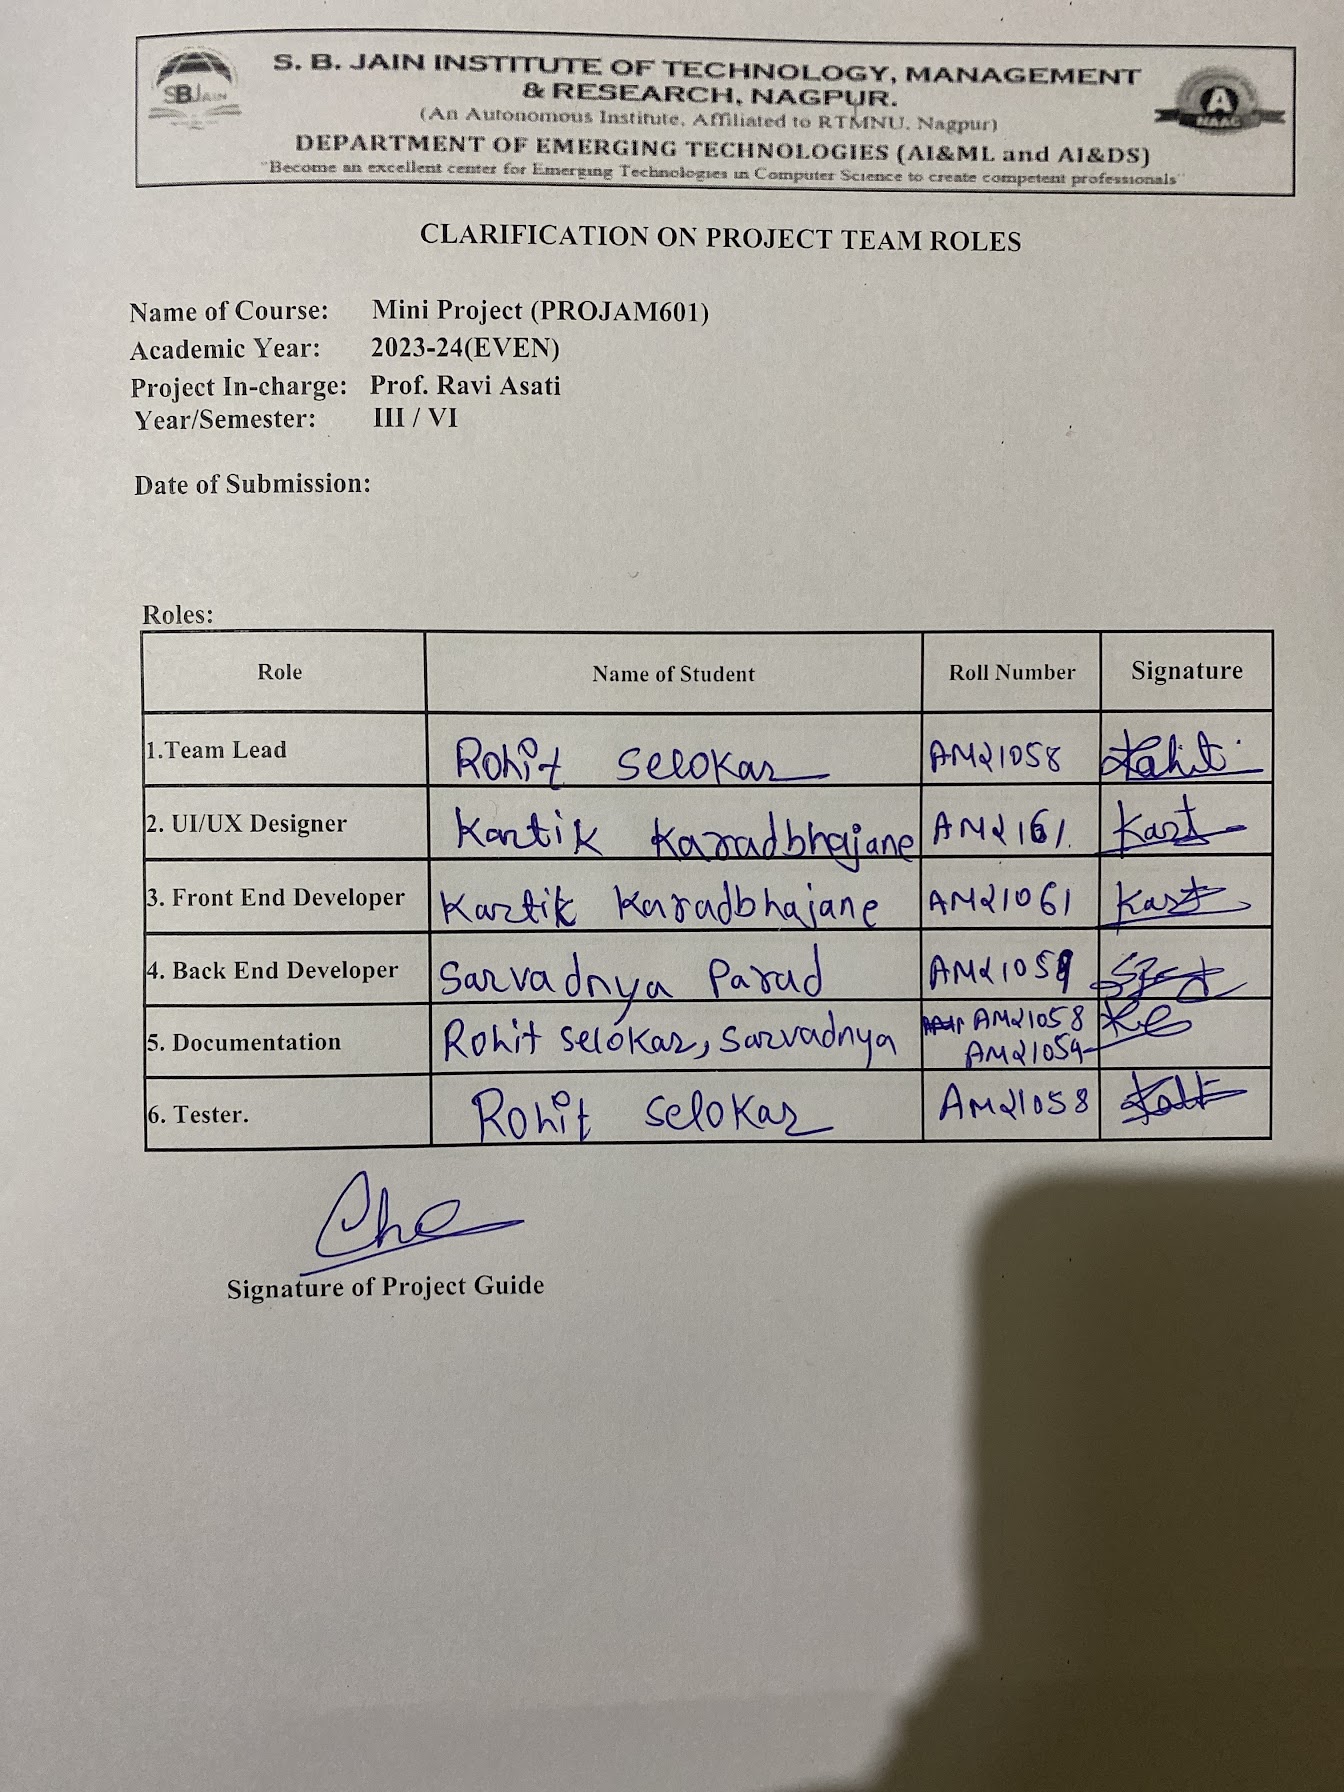 SBJAIN
S. B. JAIN INSTITUTE OF TECHNOLOGY, MANAGEMENT
& RESEARCH, NAGPUR.
(An Autonomous Institute, Affiliated to RTMNU, Nagpur)
DEPARTMENT OF EMERGING TECHNOLOGIES (AI&ML and AI&DS)
"Become an excellent center for Emerging Technologies in Computer Science to create competent professionals"
A
NAAC
CLARIFICATION ON PROJECT TEAM ROLES
Name of Course: Mini Project (PROJAM601)
Academic Year: 2023-24(EVEN)
Project In-charge: Prof. Ravi Asati
Year/Semester: III / VI
Date of Submission:
Roles:
Role Name of Student Roll Number Signature
1.Team Lead Rohit Selokar AM21058
2. UI/UX Designer Kartik Karadbhajane AM2161 Kart
3. Front End Developer Kartik Karadbhajane AM21061 Kart
4. Back End Developer Sarvadnya Parad AM21059
5. Documentation Rohit Selokar, Sarvadnya AM21058
AM21059
6. Tester. Rohit Selokar AM21058
Signature of Project Guide